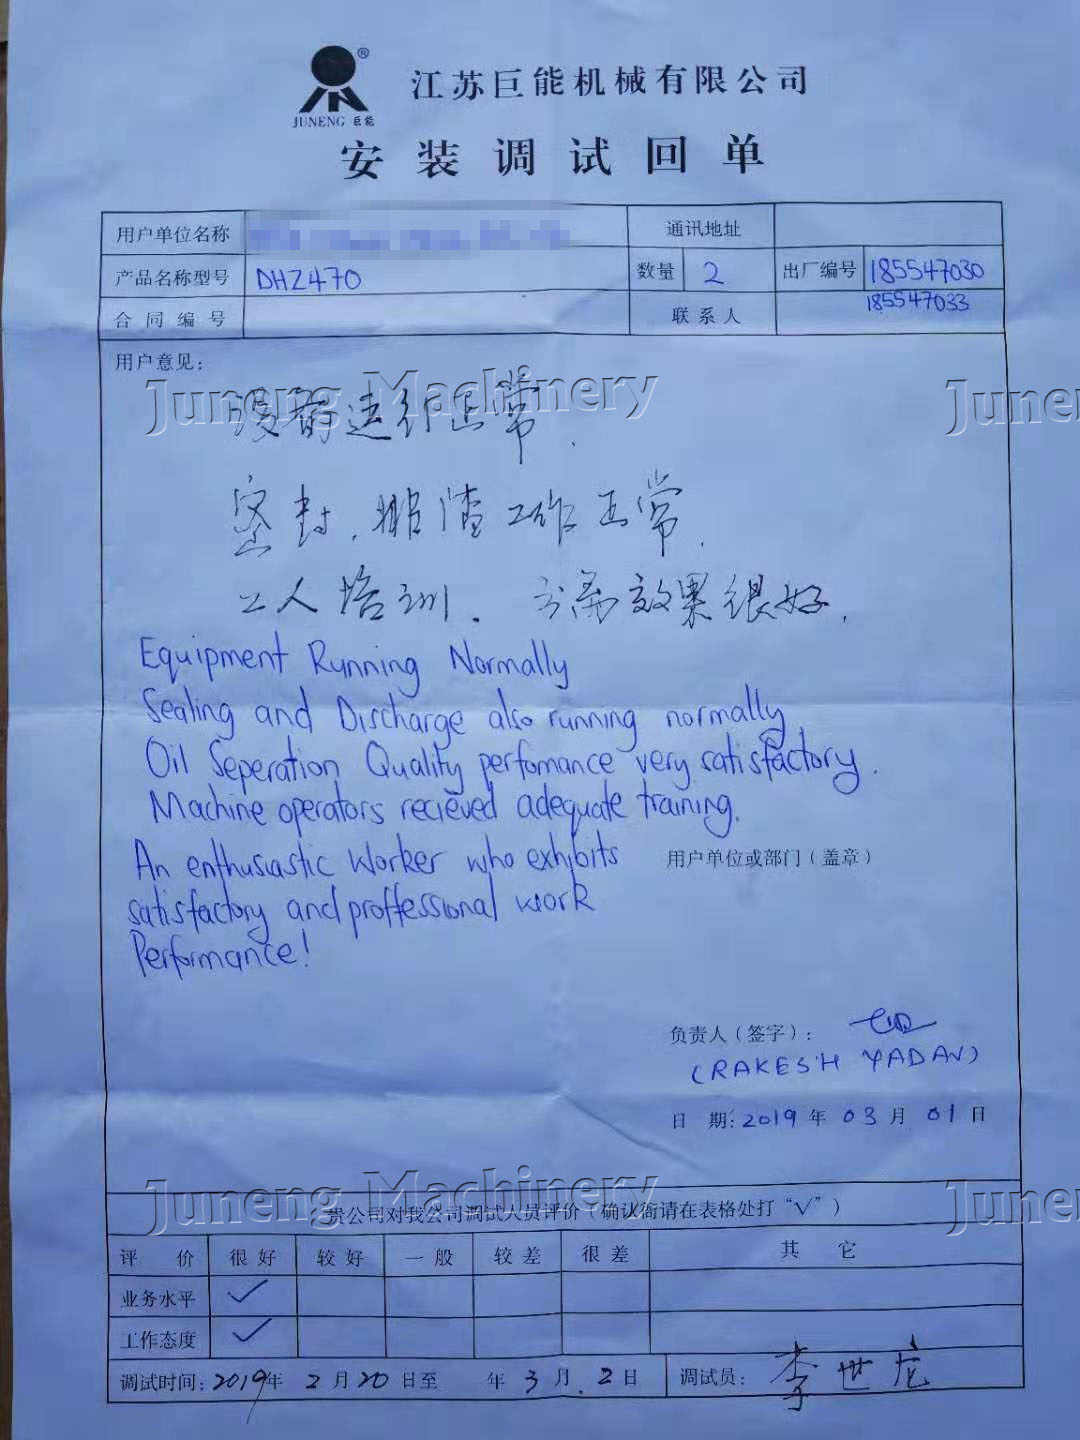 ®
JUNENG 巨能
江苏巨能机械有限公司
安装调试回单
用户单位名称 通讯地址
产品名称型号 DHZ470 数量 2 出厂编号 185547030
185547033
合同编号 联系人
用户意见:
Juneng Machinery Juneng
设备运行正常.
密封.排渣工作正常.
工人培训. 分离效果很好.
Equipment Running Normally
Sealing and Discharge also running normally
Oil Seperation Quality perfomance very satisfactory.
Machine operators recieved adequate training.
An enthusiastic Worker who exhibits 用户单位或部门(盖章)
satisfactory and proffessional work
Performance!
负责人(签字):
(RAKESH YADAV)
日 期: 2019 年 03 月 01 日
Juneng Machinery Juneng
贵公司对我公司调试人员评价(确认后请在表格处打“√”)
评 价 很好 较好 一般 较差 很差 其 它
业务水平 ✓
工作态度 ✓
调试时间: 2019年 2月20日至 年3月.2日 调试员: 李世龙